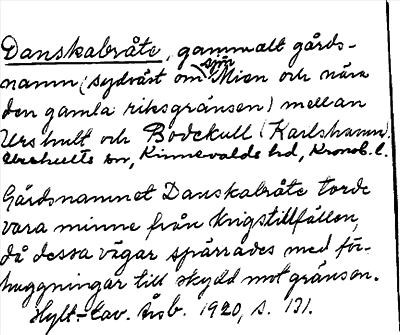 Danskabråte, gammalt gårds-
namn (sydväst om sjön Mien och nära
den gamla riksgränsen) mellan
Urshult och Bodekull (Karlshamn).
Urshults sn, Kinnevalds hd, Kronob. l.
Gårdsnamnet Danskabråte torde
vara minne från krigstillfällen,
då dessa vägar spärrades med för-
huggningar till skydd mot gränsen.
Hylt.-Cav. Årsb. 1920, s. 131.